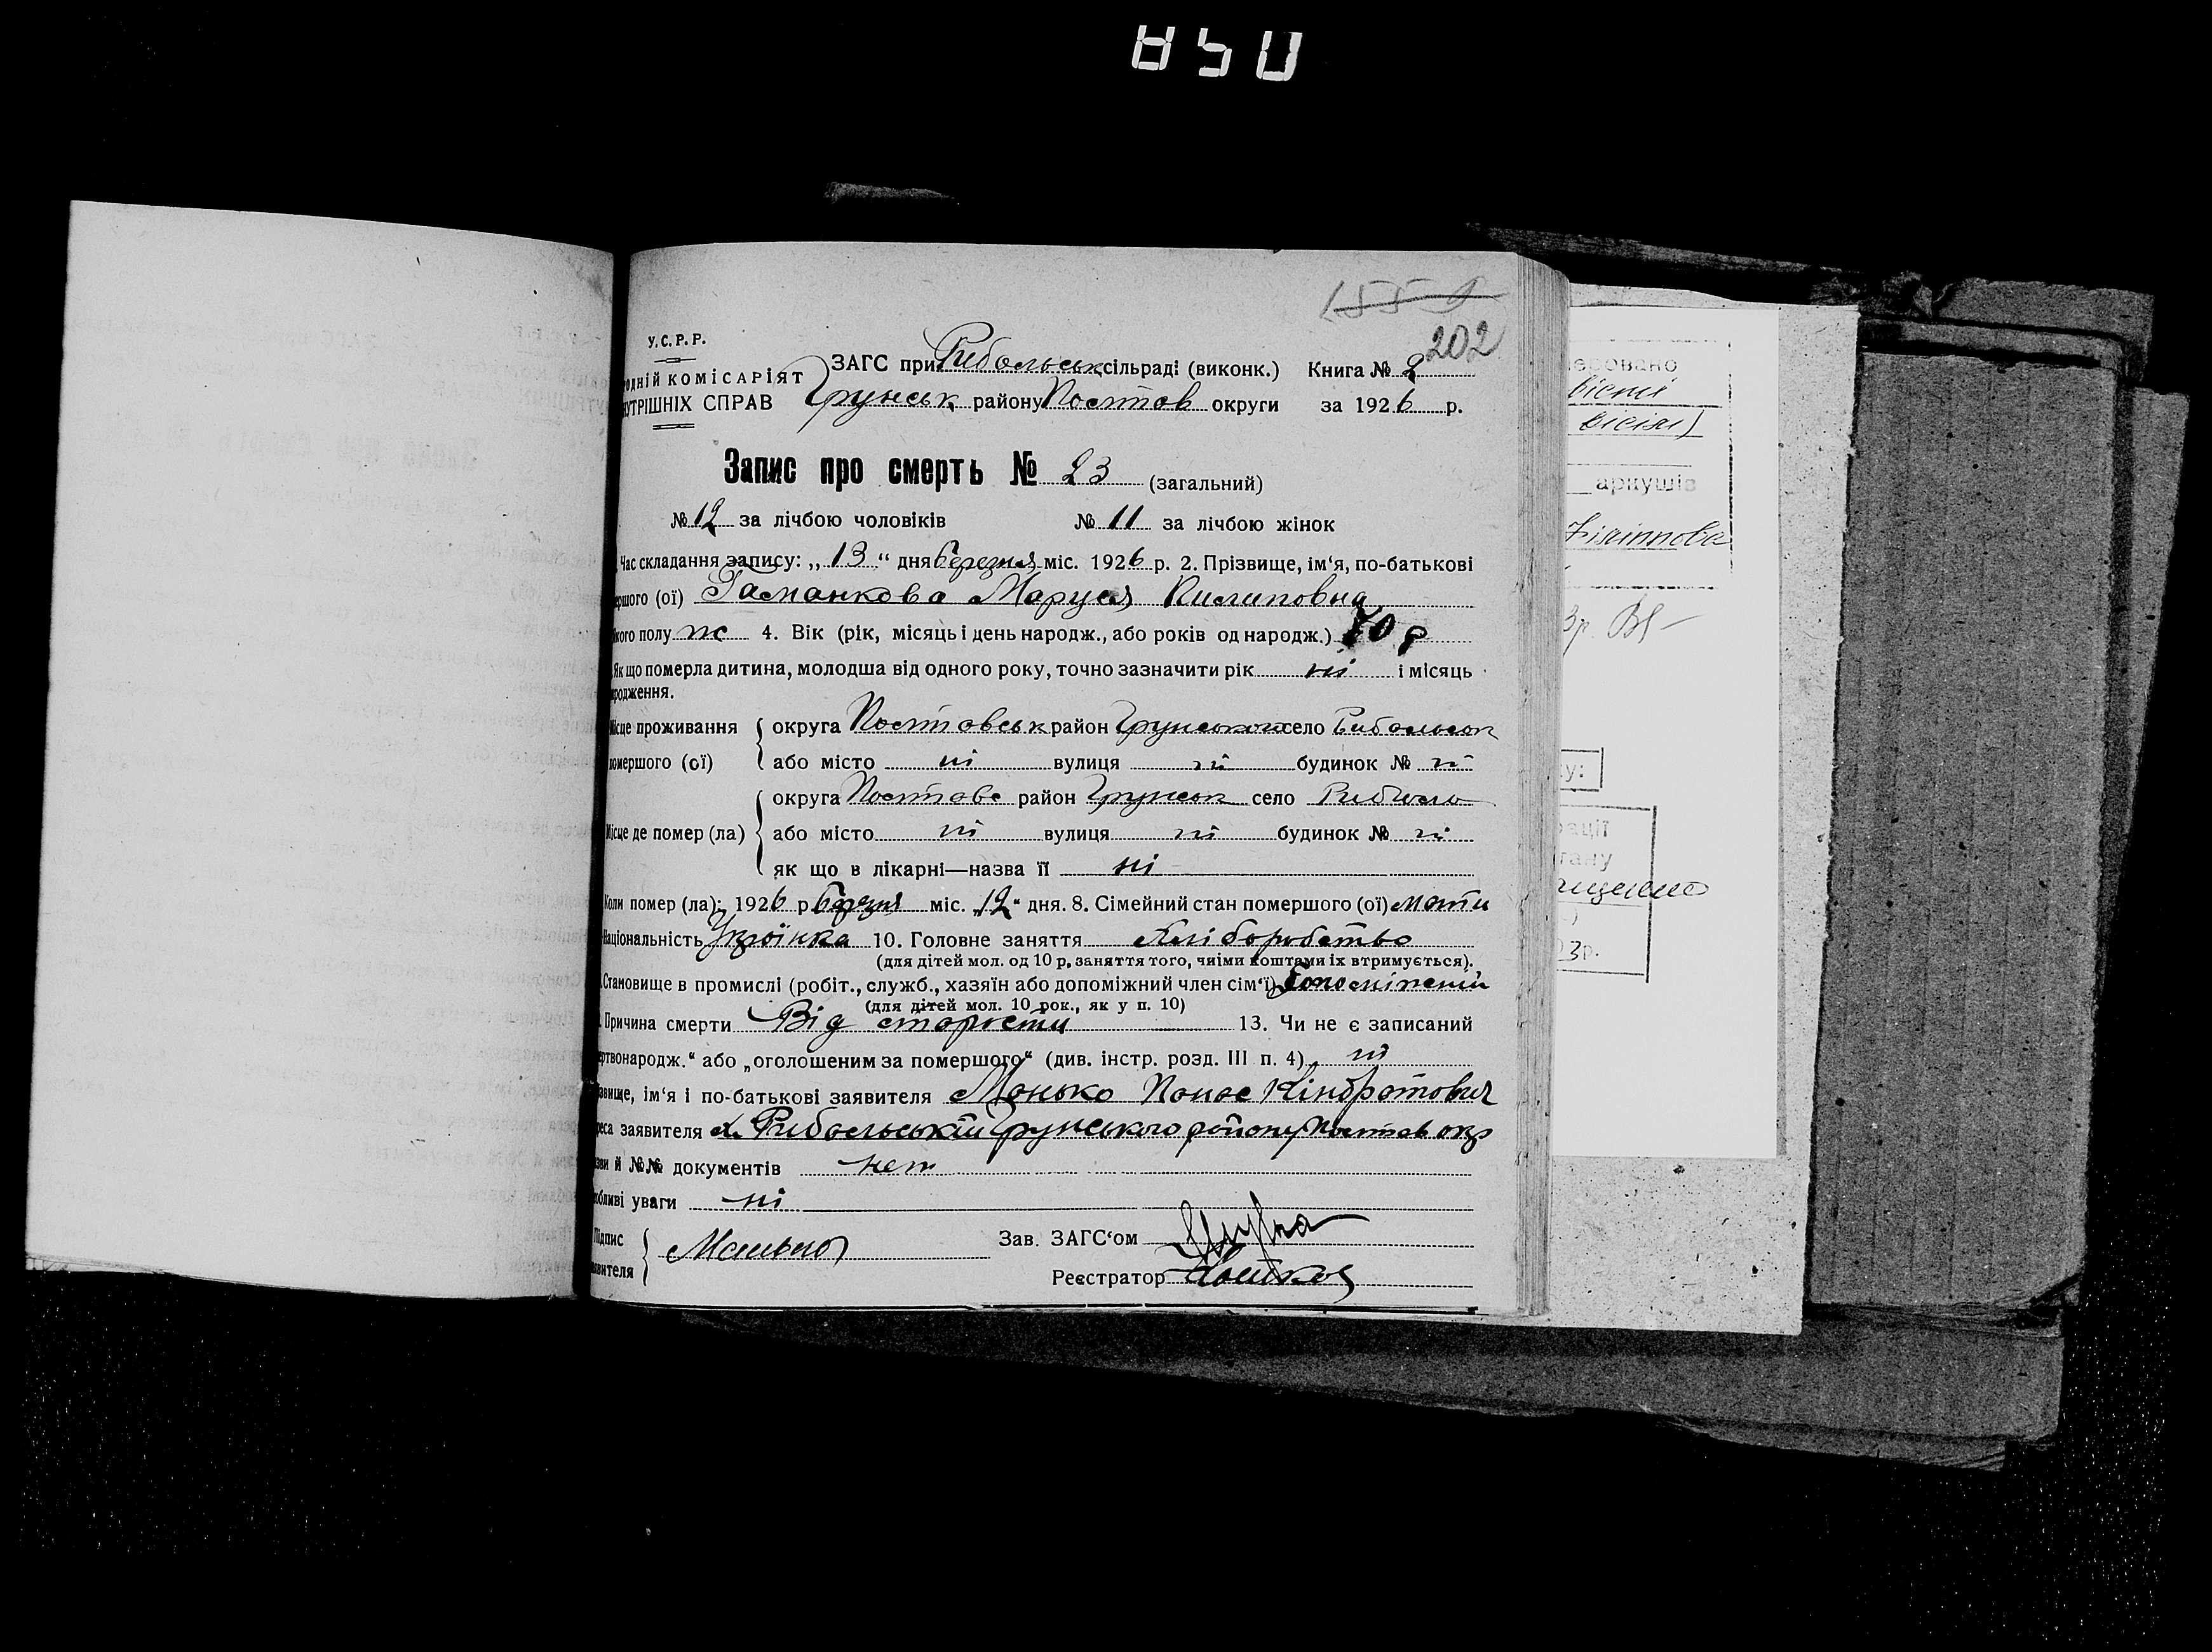 850
1559
202
У.С.Р.Р.
ЗАГС при Рибальськ сільраді (виконк.) Книга № 2
одній КОМІСАРІЯТ
УТРІШНІХ СПРАВ Грунськ району Полтав округи за 1926 р.
Запис про смерть № 23 (загальний)
№ 12 за лічбою чоловіків № 11 за лічбою жінок
Час складання запису: „13“ дня березня міс. 1926 р. 2. Прізвище, ім'я, по-батькові
ершого (ої) Гаманкова Маруся Пилиповна
кого полу ж 4. Вік (рік, місяць і день народж., або років од народж.) 70 р
Як що померла дитина, молодша від одного року, точно зазначити рік ні і місяць
родження.
ісце проживання округа Полтавськ район Грунського село Рибальськ
омершого (ої) або місто ні вулиця ні будинок № ні
округа Полтавс район Грунськ село
ісце де помер (ла) або місто ні вулиця ні будинок № ні
як що в лікарні—назва її ні
Коли помер (ла): 1926 р. березня міс. „12“ дня. 8. Сімейний стан помершого (ої) мати
Національність Україінка 10. Головне заняття Хліборобство
(для дітей мол. од 10 р. заняття того, чиїми коштами їх втримується).
Становище в промислі (робіт., служб., хазяїн або допоміжний член сім'ї)
(для дітей мол. 10 рок., як у п. 10)
Причина смерти Від старости 13. Чи не є записаний
ертвонародж.“ або „оголошеним за помершого“ (див. інстр. розд. III п. 4) ні
звище, ім'я і по-батькові заявителя Манько Панас Кіндратович
реса заявителя х. Рибальський Грунського району Полтав окр
зви й №№ документів нет
обливі уваги ні
Підпис
явителя Манько
Зав. ЗАГС'ом
Реєстратор
еровано
вісімі
аркушів
Філіппова
3р.
у:
рації
тану
3р.